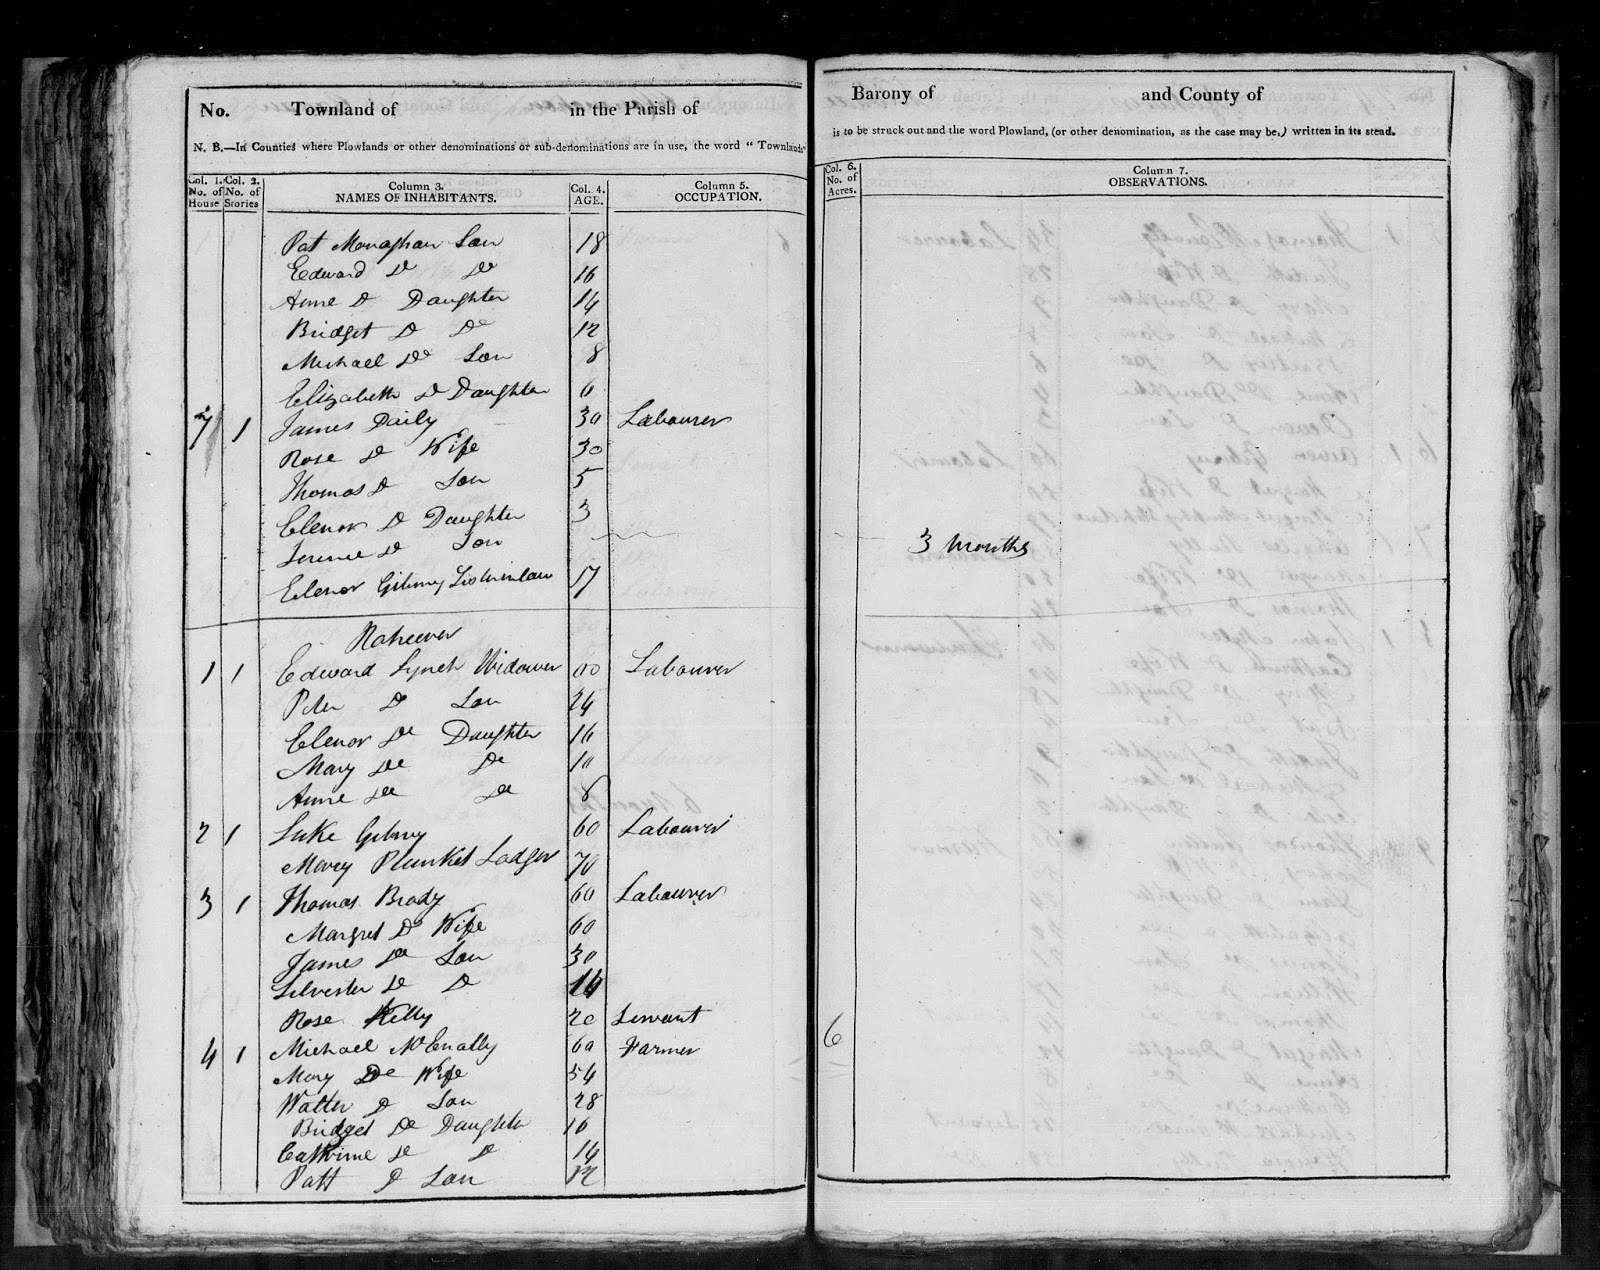 No. Townland of in the Parish of
N. B.—In Counties where Plowlands or other denominations or sub-denominations are in use, the word "Townlands"
Barony of and County of
is to be struck out and the word Plowland, (or other denomination, as the case may be,) written in its stead.
Col. 1. No. of House
Col. 2. No. of Stories
Column 3. NAMES OF INHABITANTS.
Col. 4. AGE.
Column 5. OCCUPATION.
Col. 6. No. of Acres.
Column 7. OBSERVATIONS.
Pat Monaghan Son 18
Edward Do Do 16
Anne Do Daughter 14
Bridget Do Do 12
Michael Do Son 8
Elizabeth Do Daughter 6
7 1 James Daily 30 Labourer
Rose Do Wife 30
Thomas Do Son 5
Elenor Do Daughter 3
Do Son 3 Months
Elenor Gibney 17
1 1 Edward Lynch Widower 60 Labourer
Peter Do Son 24
Elenor Do Daughter 16
Mary Do Do 10
Anne Do Do 8
2 1 Luke Gibney 60 Labourer
Mary Plunket Lodger 70
3 1 Thomas Brady 60 Labourer
Margret Do Wife 60
James Do Son 30
Silvester Do Do
Rose Kelly 20 Servant
4 1 Michael McEnally 60 Farmer 6
Mary Do Wife 54
Walter Do Son 28
Bridget Do Daughter 16
Cathrine Do Do 14
Patt Do Son 12